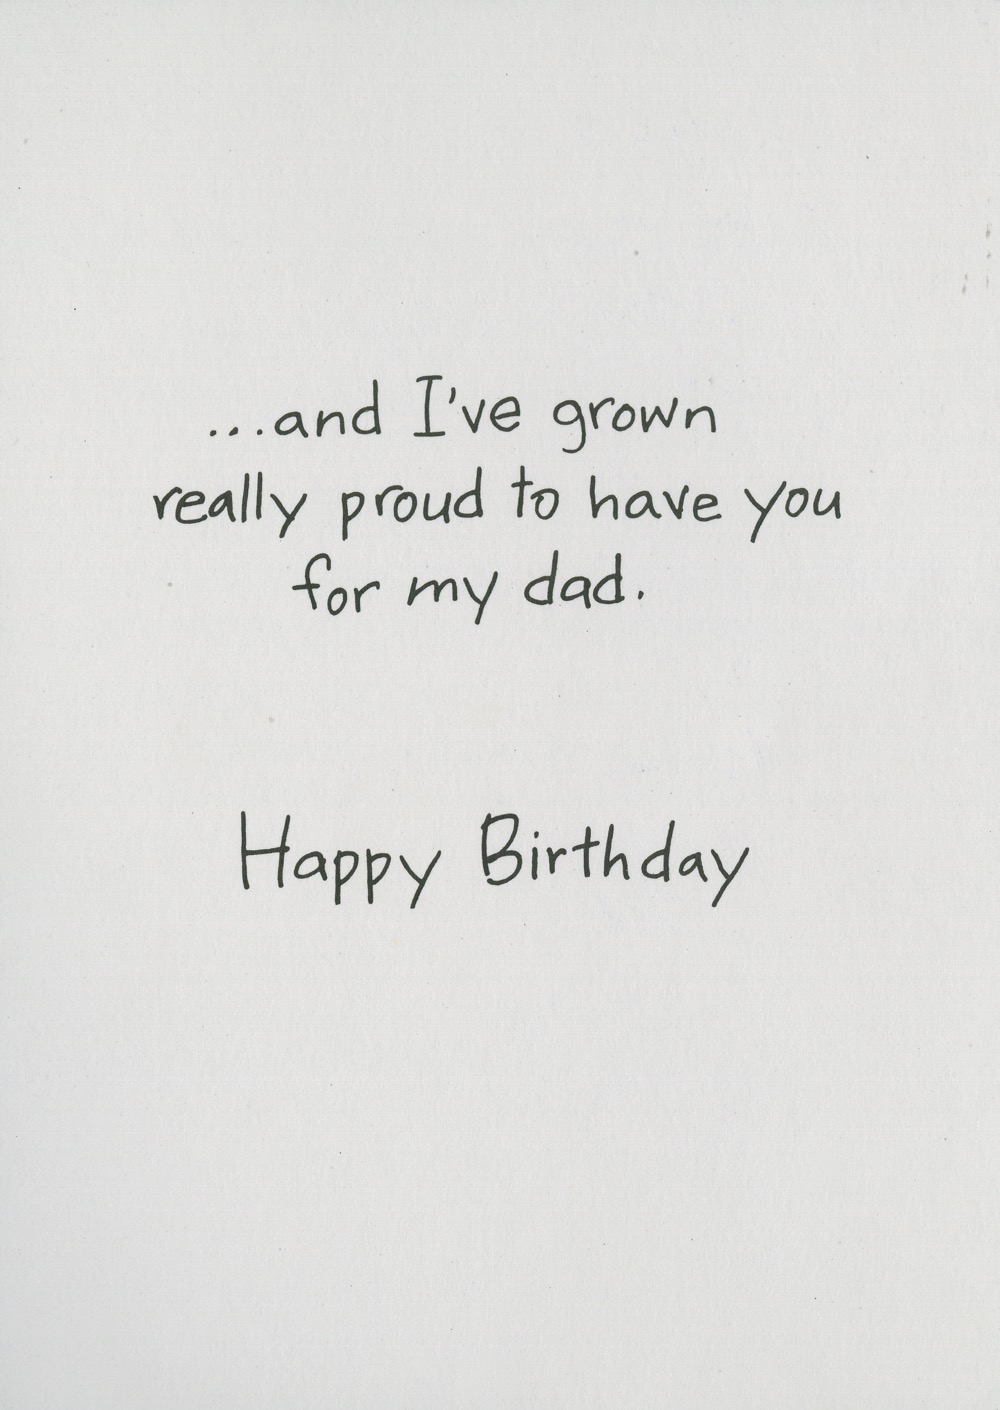 ...and I've grown
really proud to have you
for my dad.
Happy Birthday